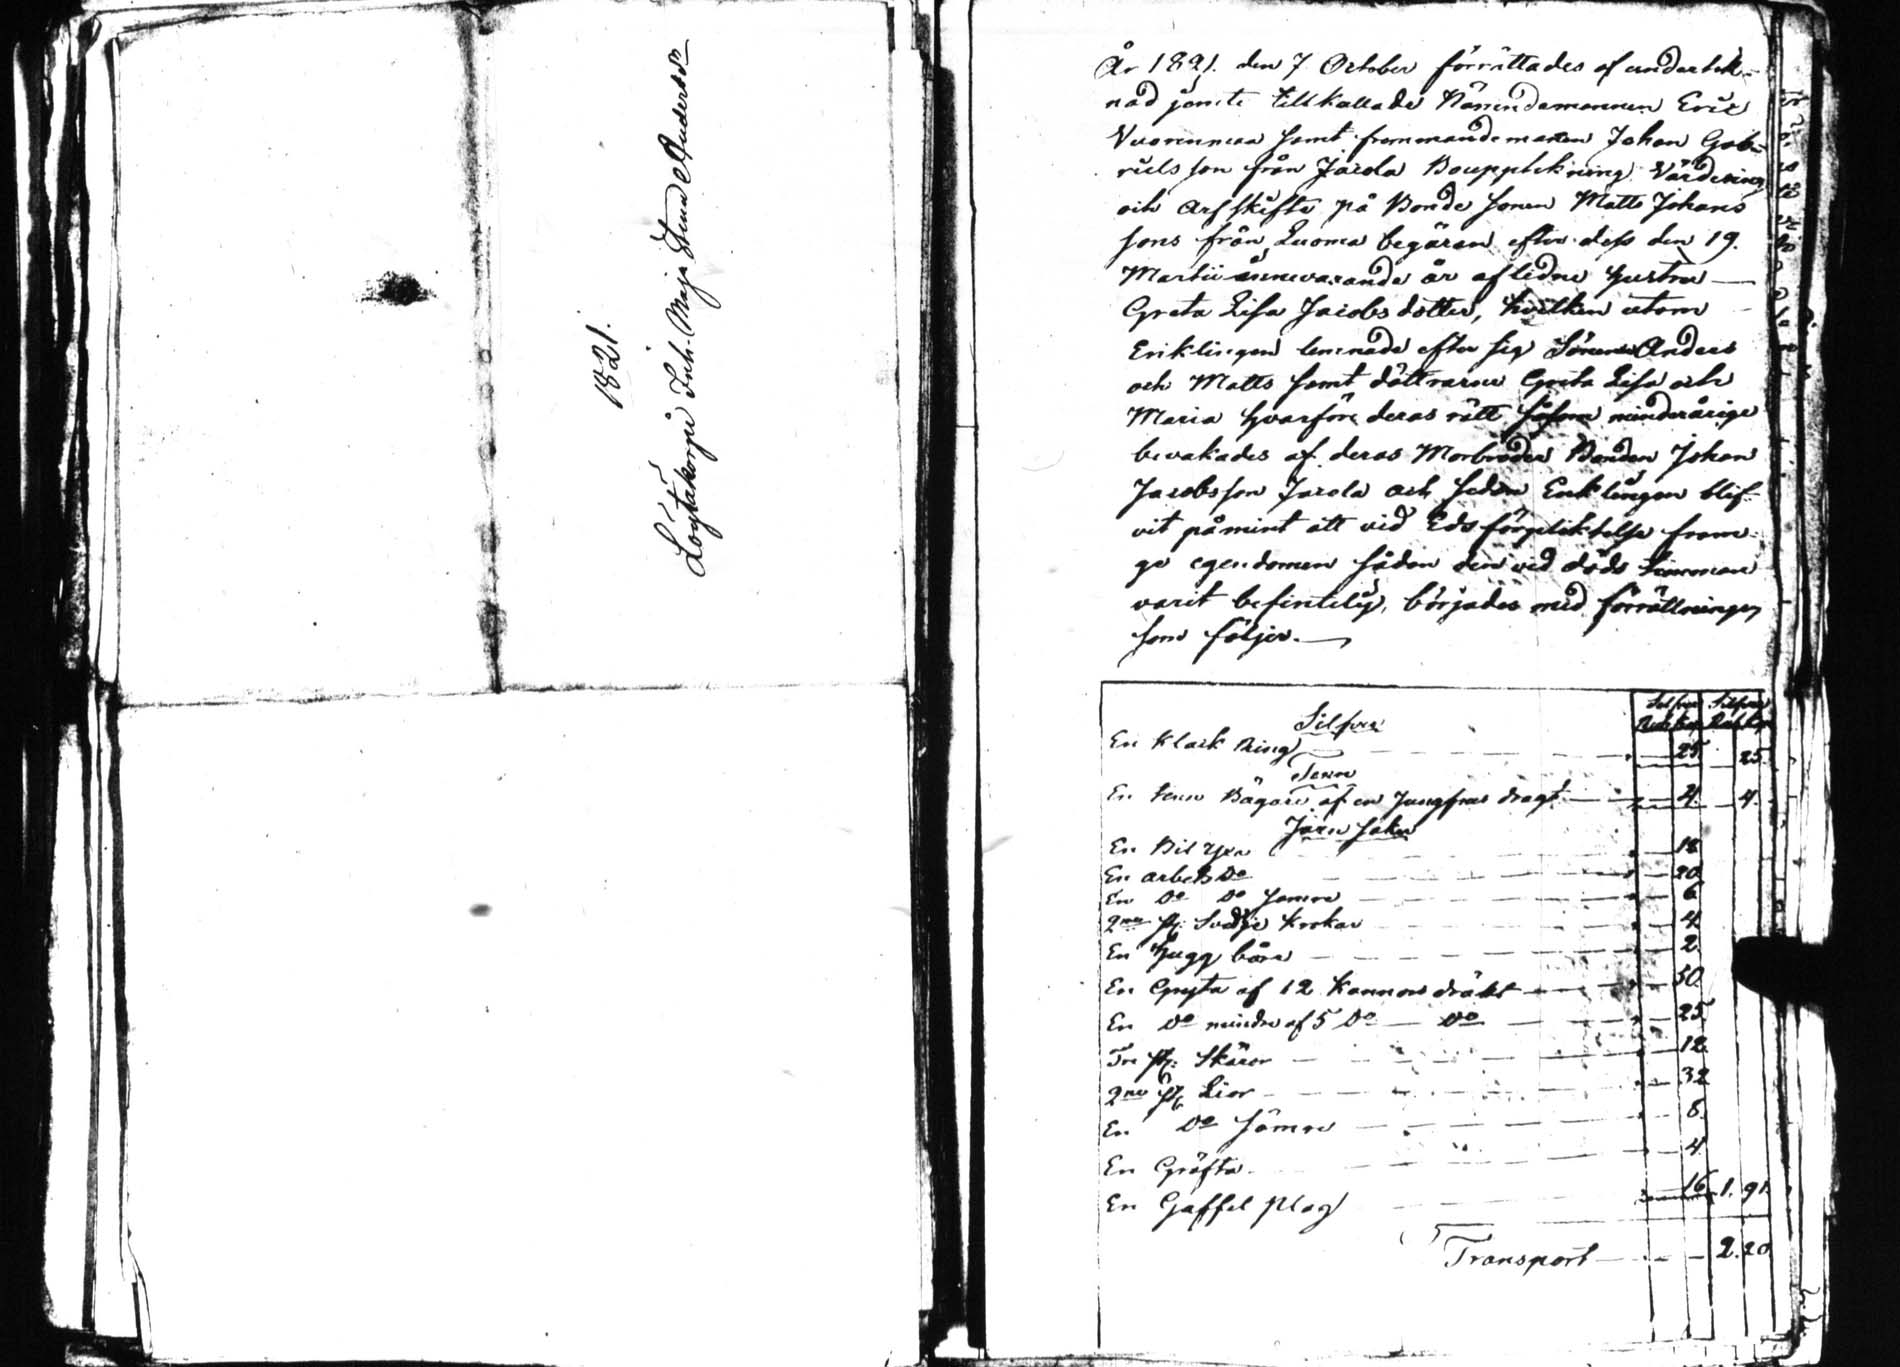 1821.
Löytäkorpi Inh. Maja Stina Andersdr
År 1821. den 7 October förrättades af undertek-
nad jemte tillkallade Nämndemannen Eric
samt frammandemannen Johan Gab-
rielsson från Jacola Bouppteckning Värdering
och Arfskifte på Bonde sonen Matts Johans
sons från Luoma begäran efter dess den 19.
Martii innevarande år aflidne hustru
Greta Lisa Jacobsdotter, hvilken utom
Enklingen lemnade efter sig Sönerne Anders
och Matts samt döttrarne Greta Lisa och
Maria hvarföre deras rätt såsom minderårige
bevakades af deras Morbroder Bonden Johan
Jacobsson Jacola och sedan Enklingen blif-
vit påmint att vid Eds förpliktelse fram-
ge egendomen sådan den vid döds timman
varit befintelig, börjades med förrättningen
som följer.
Silfver Silfver
Rub. Kop. Rub. Kop.
Silfver
En Klack Ring 25. 25.
Tenn
En tenn Bägare af en Jungfrus dragt 4. 4.
Jern saker
En Bil Yxa 18
En arbets Do 20
En Do Do sämre 6
2ne st. Svedje Krokar 4
En Hugg 2.
En Gryta af 12 Kannors dräkt 50
En Do mindre af 5 Do Do 25
Tre st. Skäror 12
2ne st. Lior 32
En Do sämre 8.
En Gräfta 4
En Gaffel Plog 16 1. 91.
Transport 2. 20.